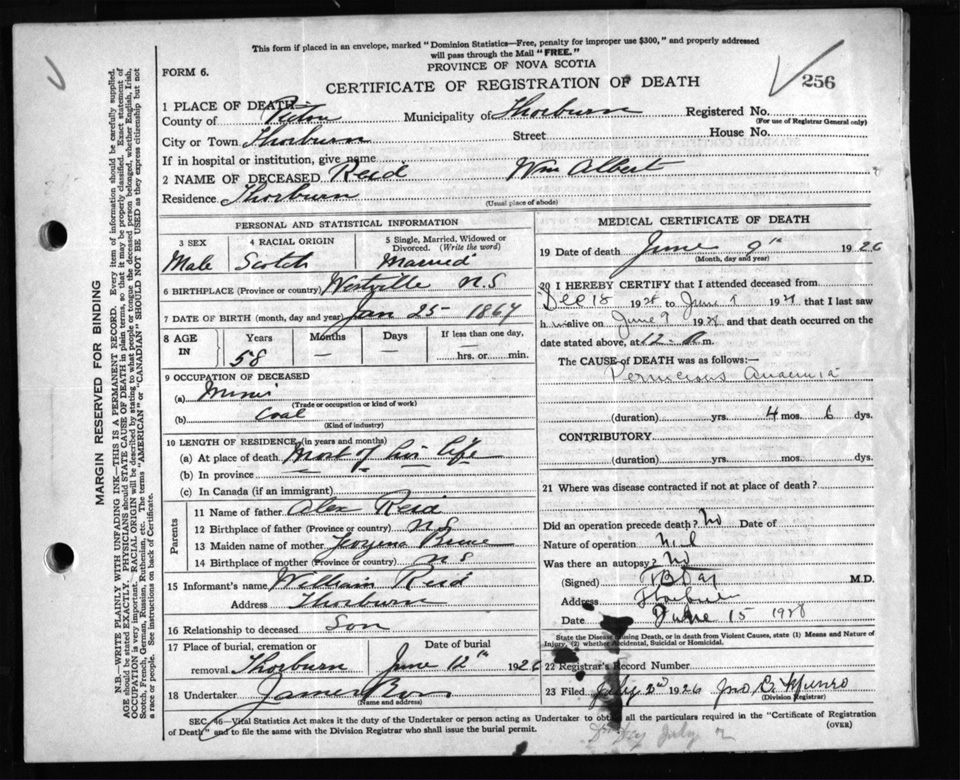 This form if placed in an envelope, marked "Dominion Statistics—Free, penalty for improper use $300," and properly addressed
will pass through the Mail "FREE."
PROVINCE OF NOVA SCOTIA
FORM 6.
CERTIFICATE OF REGISTRATION OF DEATH
256
1 PLACE OF DEATH
County of Pictou Municipality of Thorburn Registered No.
(For use of Registrar General only)
City or Town Thorburn Street House No.
If in hospital or institution, give name
2 NAME OF DECEASED Reid Wm Albert
Residence Thorburn
(Usual place of abode)
MARGIN RESERVED FOR BINDING
N.B.—WRITE PLAINLY WITH UNFADING INK—THIS IS A PERMANENT RECORD. Every item of information should be carefully supplied.
AGE should be stated EXACTLY. PHYSICIANS should STATE CAUSE OF DEATH in plain terms, so that it may be properly classified. Exact statement of
OCCUPATION is very important. RACIAL ORIGIN will be described by stating to what people or tongue the deceased person belonged, whether English, Irish,
Scotch, French, German, Russian, Ruthenian, etc. The terms "AMERICAN" or "CANADIAN" SHOULD NOT BE USED as they express citizenship but not
a race or people. See instructions on back of Certificate.
PERSONAL AND STATISTICAL INFORMATION
3 SEX
Male
4 RACIAL ORIGIN
Scotch
5 Single, Married, Widowed or
Divorced. (Write the word)
Married
6 BIRTHPLACE (Province or country) Westville N.S
7 DATE OF BIRTH (month, day and year) Jan 25 1867
8 AGE IN
Years
58
Months
—
Days
—
If less than one day,
hrs. or min.
9 OCCUPATION OF DECEASED
(a) Miner
(Trade or occupation or kind of work)
(b) Coal
(Kind of industry)
10 LENGTH OF RESIDENCE (in years and months)
(a) At place of death Most of his life
(b) In province
(c) In Canada (if an immigrant)
Parents
11 Name of father Alex Reid
12 Birthplace of father (Province or country) N S
13 Maiden name of mother
14 Birthplace of mother (Province or country) N S
15 Informant's name William Reid
Address Thorburn
16 Relationship to deceased Son
17 Place of burial, cremation or
removal Thorburn
Date of burial
June 12th 1926
18 Undertaker James
(Name and address)
MEDICAL CERTIFICATE OF DEATH
19 Date of death June 9th 1926
(Month, day and year)
20 I HEREBY CERTIFY that I attended deceased from
Dec 18 192 to June 192 that I last saw
h alive on June 9 192 and that death occurred on the
date stated above, at 12- m.
The CAUSE OF DEATH was as follows:—
Pernicious Anaemia
(duration) yrs. 4 mos. 6 dys.
CONTRIBUTORY
(duration) yrs. mos. dys.
21 Where was disease contracted if not at place of death?
Did an operation precede death? No Date of
Nature of operation Nil
Was there an autopsy? No
(Signed) M.D.
Address Thorburn
Date June 15 192
State the Disease Causing Death, or in death from Violent Causes, state (1) Means and Nature of
Injury, (2) whether Accidental, Suicidal or Homicidal.
22 Registrar's Record Number
23 Filed July 2nd 1926 Jno B Munro
(Division Registrar)
SEC. 46—Vital Statistics Act makes it the duty of the Undertaker or person acting as Undertaker to obtain all the particulars required in the "Certificate of Registration
of Death" and to file the same with the Division Registrar who shall issue the burial permit.
(OVER)
July 2